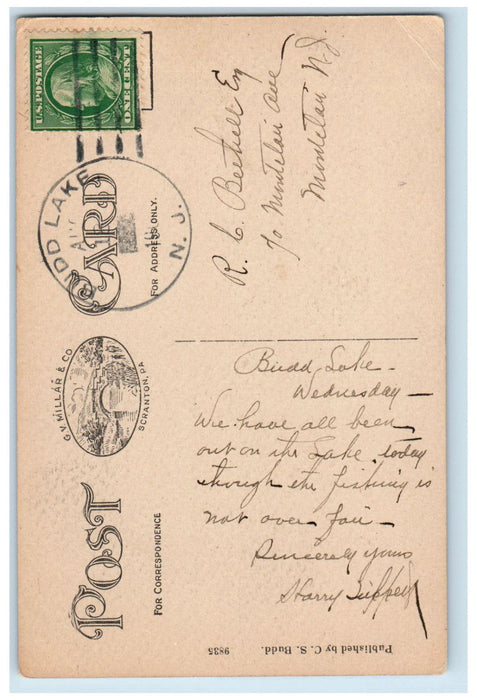 U.S. POSTAGE
ONE CENT
BUDD LAKE
N. J.
POST CARD
G.V. MILLAR & CO
SCRANTON, PA.
FOR CORRESPONDENCE
FOR ADDRESS ONLY.
Budd Lake -
Wednesday -
We have all been
out on the Lake today
though the fishing is
not over fair -
Sincerely yours
Harry
R. C. Esq
Ave
N. J.
Published by C. S. Budd.
9835